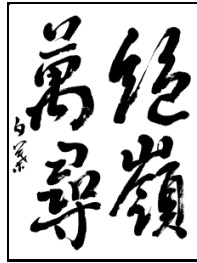 絶嶺
萬尋
白葉